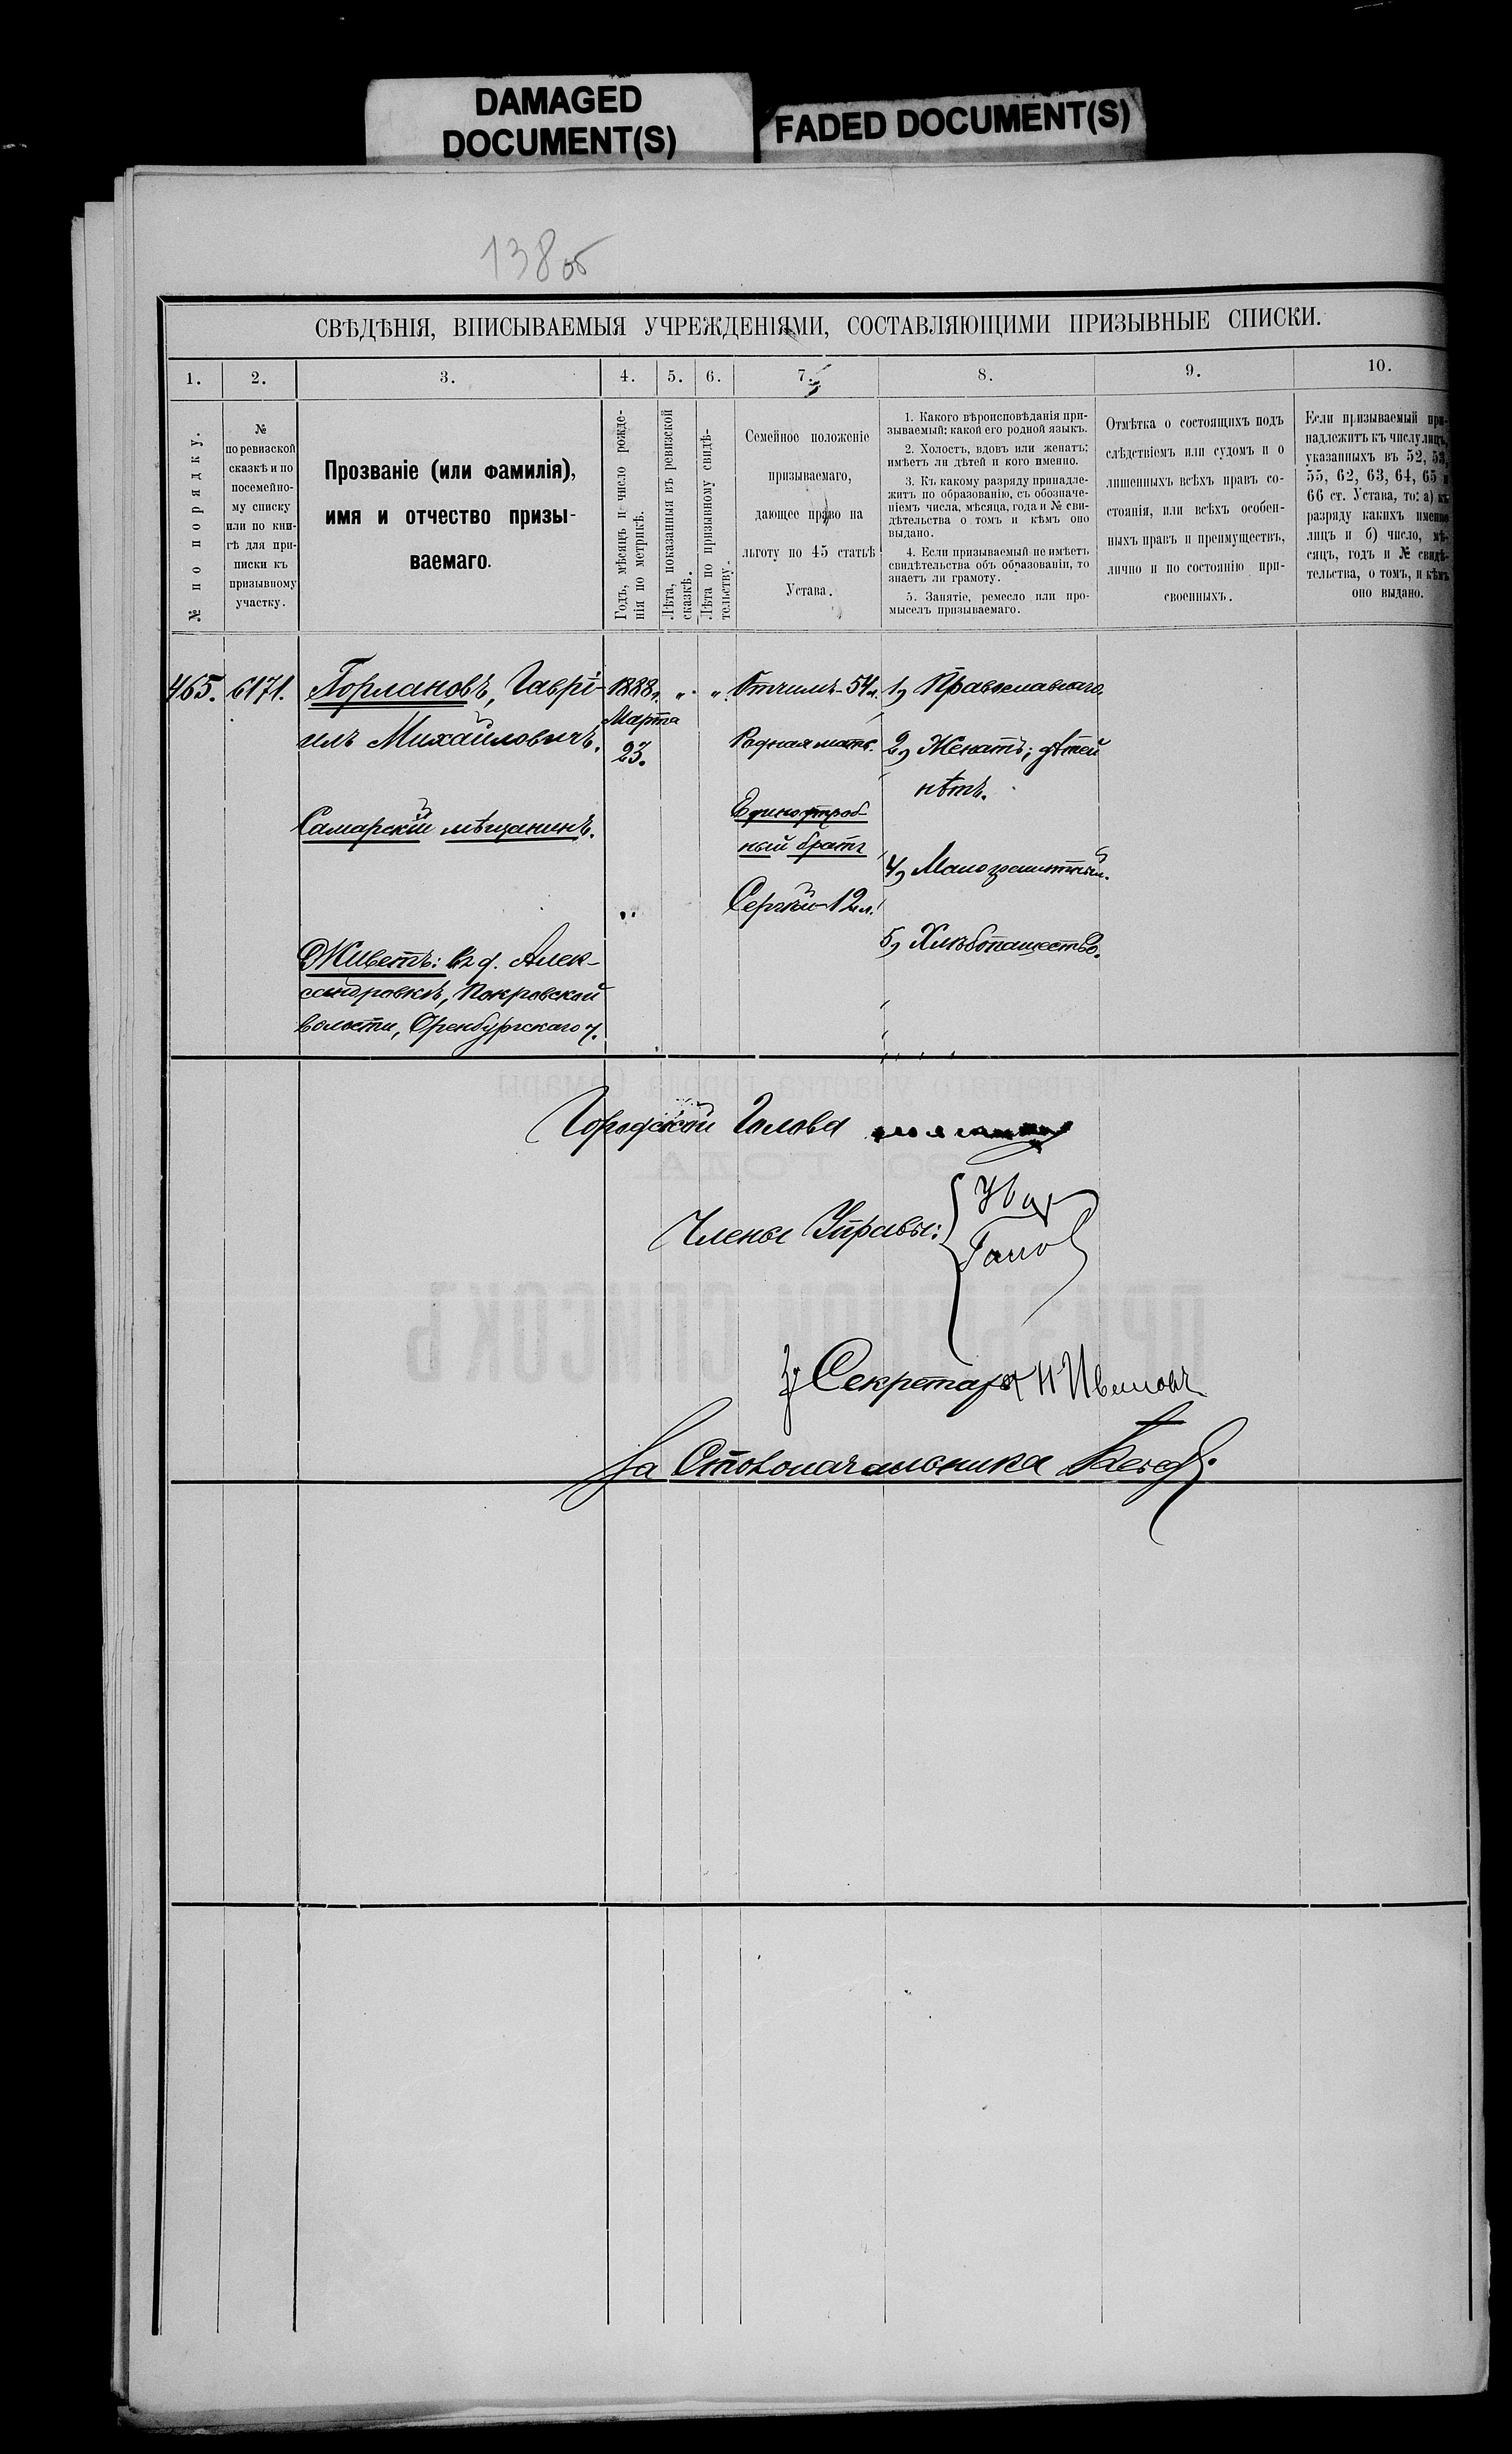 DAMAGED
DOCUMENT(S)
FADED DOCUMENT(S)
138 об
СВѢДѢНІЯ, ВПИСЫВАЕМЫЯ УЧРЕЖДЕНІЯМИ, СОСТАВЛЯЮЩИМИ ПРИЗЫВНЫЕ СПИСКИ.
1. 2. 3. 4. 5. 6. 7. 8. 9. 10.
№ по порядку.
№
по ревизской
сказкѣ и по
посемейно-
му списку
или по кни-
гѣ для при-
писки къ
призывному
участку.
Прозваніе (или фамилія),
имя и отчество призы-
ваемаго.
Годъ, мѣсяцъ и число рожде-
нія по метрикѣ.
Лѣта, показанныя въ ревизской
сказкѣ.
Лѣта по призывному свидѣ-
тельству.
Семейное положеніе
призываемаго,
дающее право на
льготу по 45 статьѣ
Устава.
1. Какого вѣроисповѣданія при-
зываемый: какой его родной языкъ.
2. Холостъ, вдовъ или женатъ;
имѣетъ ли дѣтей и кого именно.
3. Къ какому разряду принадле-
житъ по образованію, съ обозначе-
ніемъ числа, мѣсяца, года и № сви-
дѣтельства о томъ и кѣмъ оно
выдано.
4. Если призываемый не имѣетъ
свидѣтельства объ образованіи, то
знаетъ ли грамоту.
5. Занятіе, ремесло или про-
мыселъ призываемаго.
Отмѣтка о состоящихъ подъ
слѣдствіемъ или судомъ и о
лишенныхъ всѣхъ правъ со-
стоянія, или всѣхъ особен-
ныхъ правъ и преимуществъ,
лично и по состоянію при-
своенныхъ.
Если призываемый при-
надлежитъ къ числу лицъ,
указанныхъ въ 52, 53,
55, 62, 63, 64, 65 и
66 ст. Устава, то: а) къ
разряду какихъ именно
лицъ и б) число, мѣ-
сяцъ, годъ и № свидѣ-
тельства, о томъ, и кѣмъ
оно выдано.
465. 6171.
Горлановъ, Гаврі-
илъ Михайловичъ.
Самарскій мѣщанинъ.
Живетъ: въ д. Алек-
сандровкѣ, Покровской
волости, Оренбургскаго у.
1888 г.
Марта
23.
" "
Отчимъ - 54 л.
Родная мать.
Единоутроб-
ный братъ
Сергѣй - 12 л.
1, Православнаго.
2, Женатъ; дѣтей
нѣтъ.
4, Малограмотный.
5, Хлѣбопашество.
Городской Голова
Члены Управы:
Секретаря Н Ивановъ
За Столоначальника